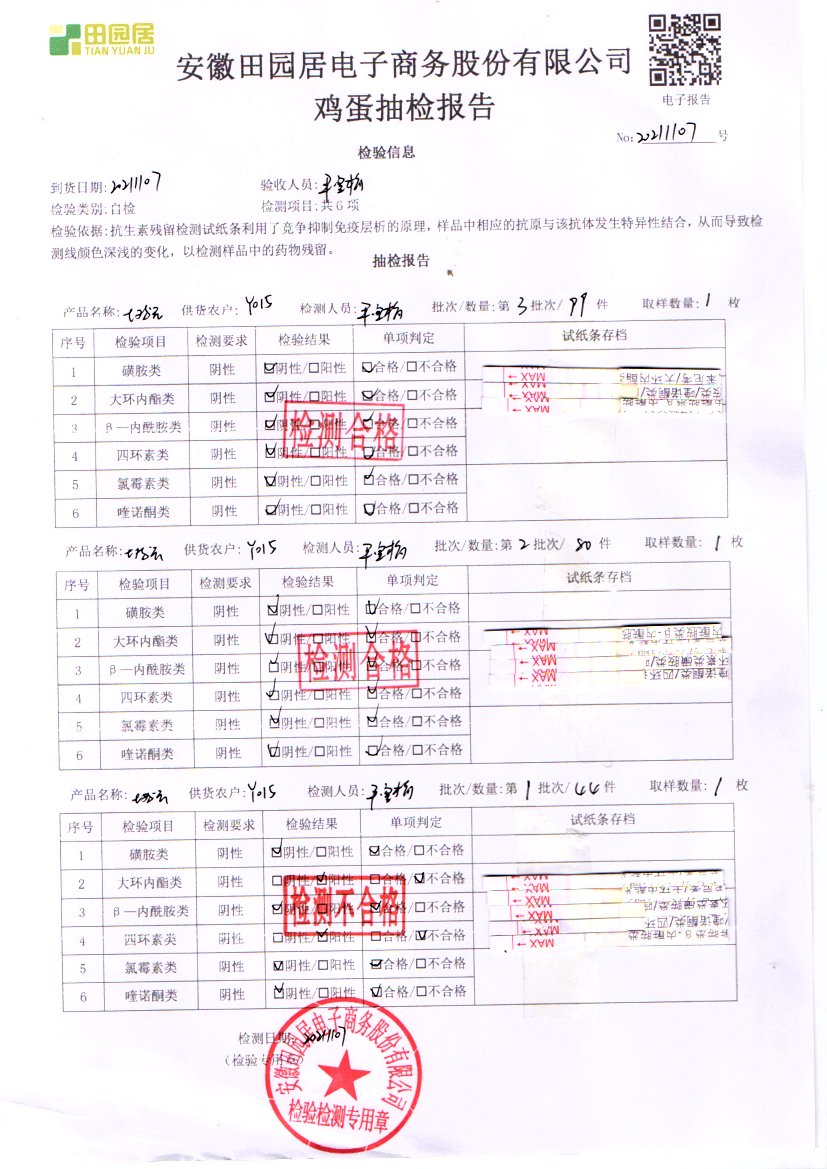 田园居
TIAN YUAN JU
安徽田园居电子商务股份有限公司
鸡蛋抽检报告
电子报告
No: 20211107 号
检验信息
到货日期: 20211107 验收人员:
检验类别: 自检 检测项目: 共 6 项
检验依据: 抗生素残留检测试纸条利用了竞争抑制免疫层析的原理, 样品中相应的抗原与该抗体发生特异性结合, 从而导致检
测线颜色深浅的变化, 以检测样品中的药物残留。
抽检报告
产品名称: 供货农户: Y015 检测人员: 批次/数量: 第 3 批次/ 99 件 取样数量: 1 枚
序号 检验项目 检测要求 检验结果 单项判定 试纸条存档
1 磺胺类 阴性 ☑阴性/□阳性 ☑合格/□不合格
2 大环内酯类 阴性 ☑阴性/□阳性 ☑合格/□不合格
3 β—内酰胺类 阴性 ☑阴性/□阳性 ☑合格/□不合格
4 四环素类 阴性 ☑阴性/□阳性 ☑合格/□不合格
5 氯霉素类 阴性 ☑阴性/□阳性 ☑合格/□不合格
6 喹诺酮类 阴性 ☑阴性/□阳性 ☑合格/□不合格
检测合格
MAX
MAX
MAX
产品名称: 供货农户: Y015 检测人员: 批次/数量: 第 2 批次/ 80 件 取样数量: 1 枚
序号 检验项目 检测要求 检验结果 单项判定 试纸条存档
1 磺胺类 阴性 ☑阴性/□阳性 ☑合格/□不合格
2 大环内酯类 阴性 ☑阴性/□阳性 ☑合格/□不合格
3 β—内酰胺类 阴性 ☑阴性/□阳性 ☑合格/□不合格
4 四环素类 阴性 ☑阴性/□阳性 ☑合格/□不合格
5 氯霉素类 阴性 ☑阴性/□阳性 ☑合格/□不合格
6 喹诺酮类 阴性 ☑阴性/□阳性 ☑合格/□不合格
检测合格
MAX
MAX
MAX
产品名称: 供货农户: Y015 检测人员: 批次/数量: 第 1 批次/ 44 件 取样数量: 1 枚
序号 检验项目 检测要求 检验结果 单项判定 试纸条存档
1 磺胺类 阴性 ☑阴性/□阳性 ☑合格/□不合格
2 大环内酯类 阴性 □阴性/☑阳性 □合格/☑不合格
3 β—内酰胺类 阴性 ☑阴性/□阳性 ☑合格/□不合格
4 四环素类 阴性 □阴性/☑阳性 □合格/☑不合格
5 氯霉素类 阴性 ☑阴性/□阳性 ☑合格/□不合格
6 喹诺酮类 阴性 ☑阴性/□阳性 ☑合格/□不合格
检测不合格
MAX
MAX
MAX
MAX
MAX
检测日期: 20211107
(检验专用章)
安徽田园居电子商务股份有限公司
检验检测专用章